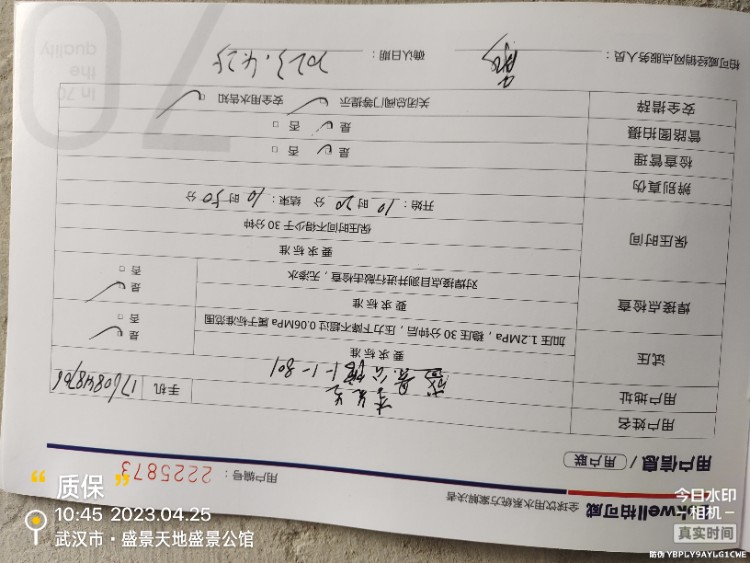 well柏可威 全球饮用水系统方案解决者
用户信息 / 用户联 用户编号: 2225873
用户姓名 李先生 手机 17608448706
用户地址 盛景公馆 1-1-801
试压 要求标准
加压1.2MPa,稳压30分钟后,压力下降不超过0.06MPa属于标准范围
是
否
焊接点检查 要求标准
对焊接点目测并进行敲击检查,无渗水
是
否
保压时间 要求标准
保压时间不得少于30分钟
开始: 10 时 20 分 结束: 10 时 50 分
辨别真伪
检查管理 是 否
管路图拍摄 是 否
安全措辞 关闭总阀门等提示 安全用水告知
柏可威经销网点服务人员: 确认日期: 2023.4.25
In 70
the
quality
70
“质保”
10:45 2023.04.25
武汉市·盛景天地盛景公馆
今日水印
相机
真实时间
防伪 YBPLY9AYLG1CWE